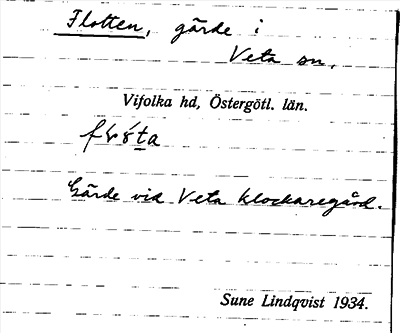 Flotten, gärde i
Veta sn,
Vifolka hd, Östergötl. län.
Gärde vid Veta klockaregård.
Sune Lindqvist 1934.